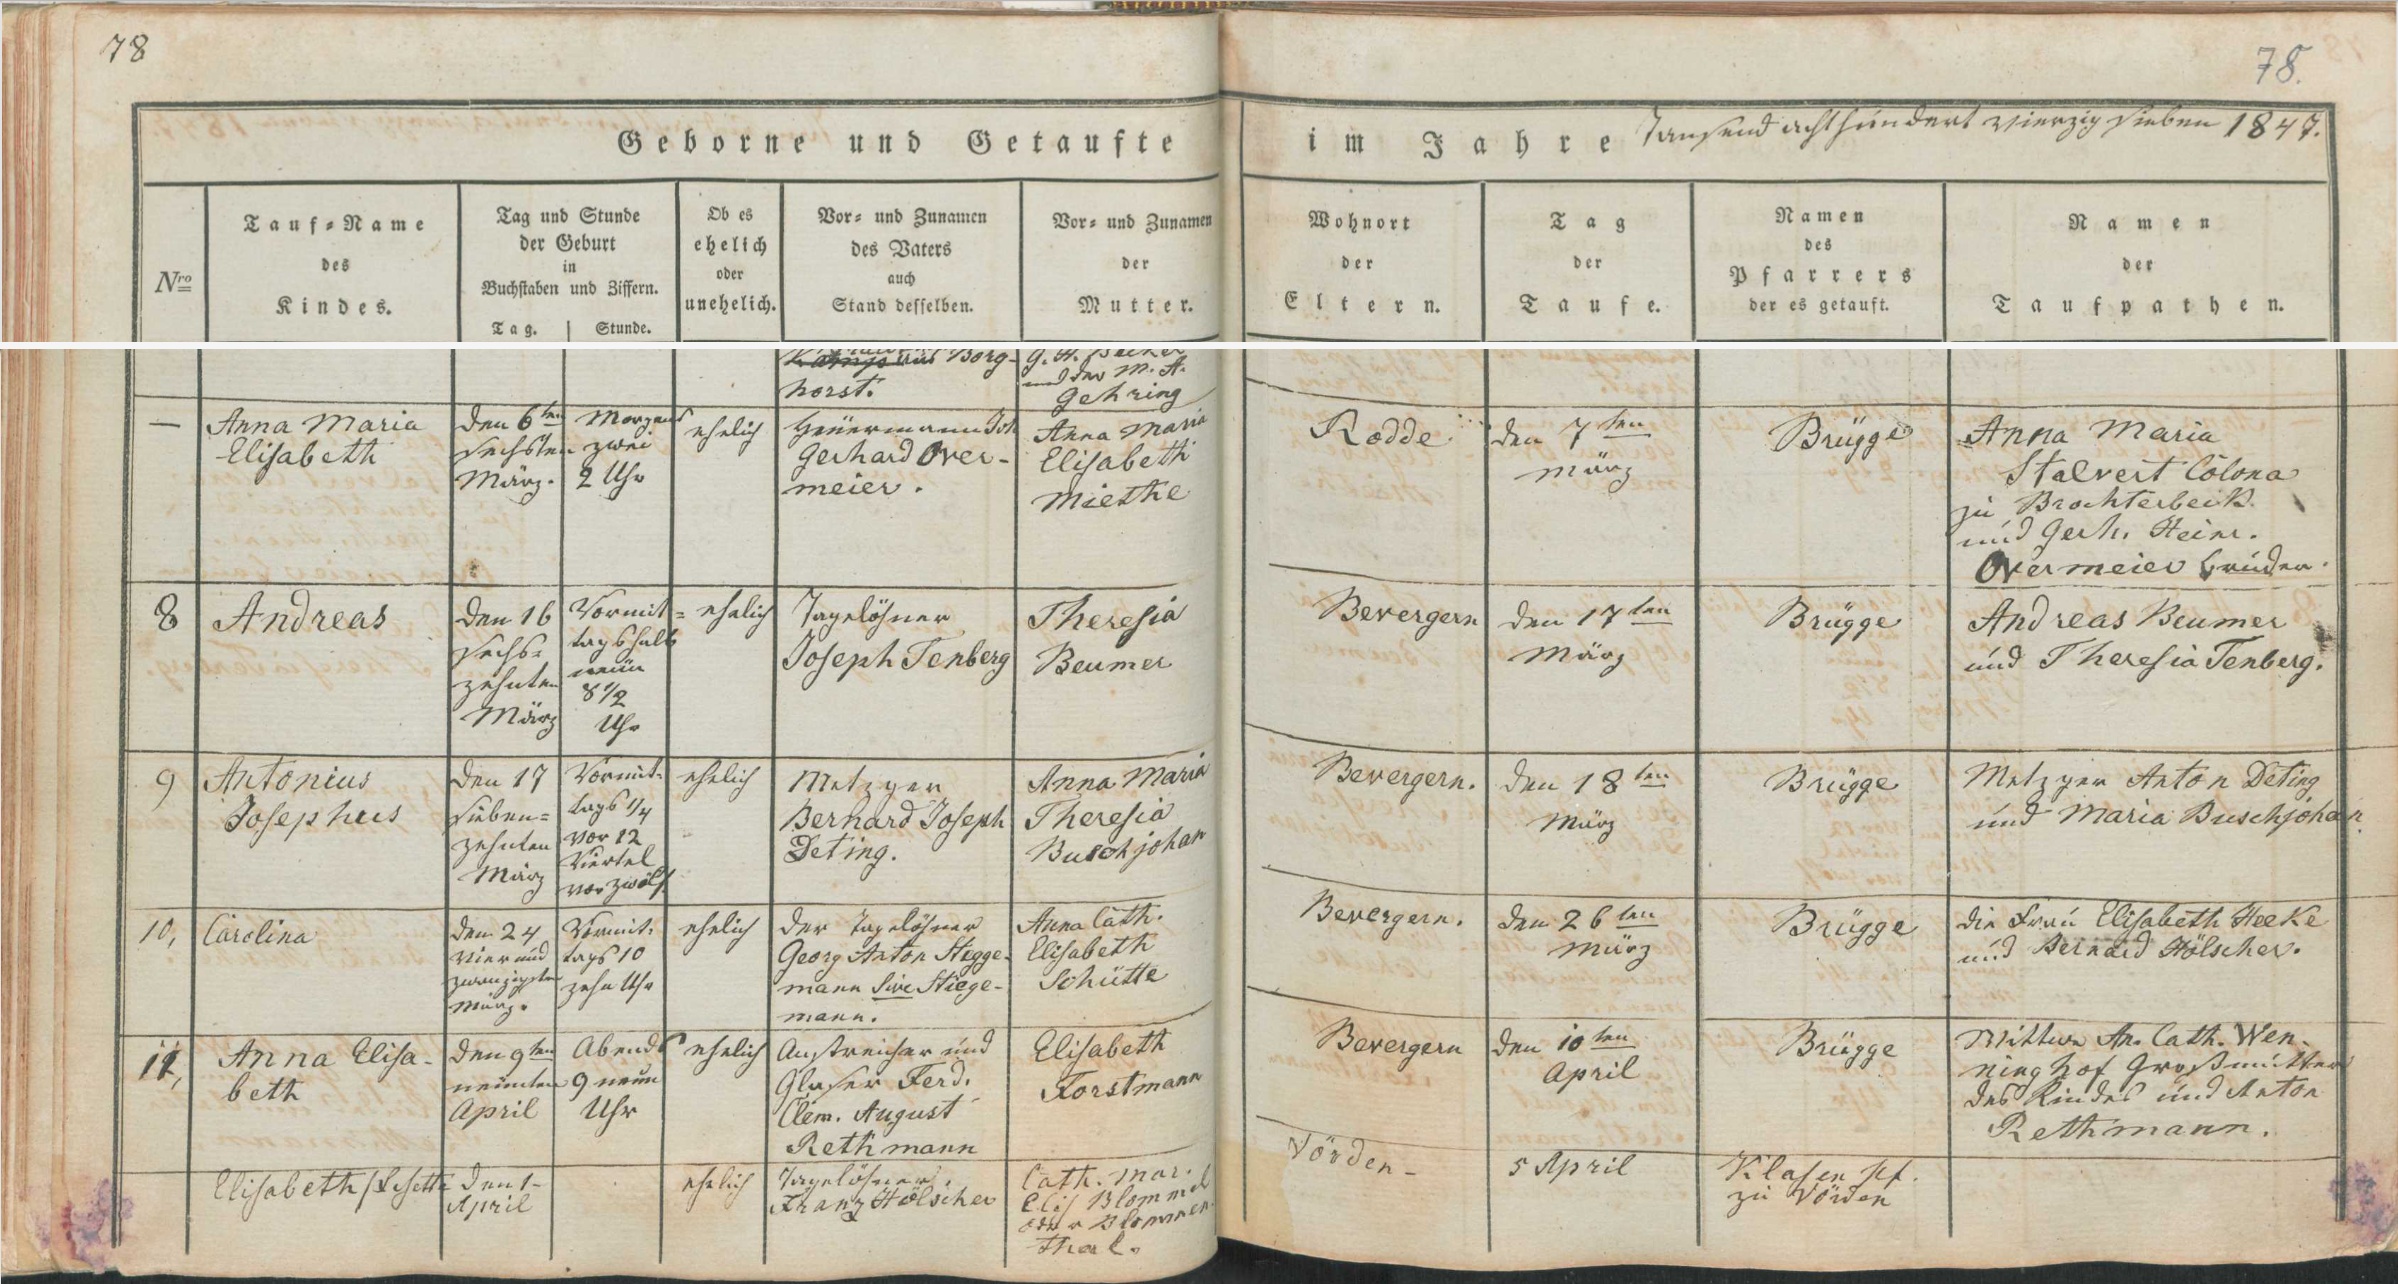 78
78.
Geborne und Getaufte im Jahre Tausend achthundert vierzig sieben 1847.
Nro
Tauf-Name
des
Kindes.
Tag und Stunde
der Geburt
in
Buchstaben und Ziffern.
Tag. | Stunde.
Ob es
ehelich
oder
unehelich.
Vor- und Zunamen
des Vaters
auch
Stand desselben.
Vor- und Zunamen
der
Mutter.
Wohnort
der
Eltern.
Tag
der
Taufe.
Namen
des
Pfarrers
der es getauft.
Namen
der
Taufpathen.
Borg-
horst.
G. H. Becker
und der M. A.
Gehring
—
Anna Maria
Elisabeth
den 6ten
sechsten
März.
Morgens
zwei
2 Uhr
ehelich
Heuermann Joh
Gerhard Over-
meier.
Anna Maria
Elisabeth
Miethe
Rodde
den 7ten
März
Brügge
Anna Maria
Stalvert Colona
zu Brochterbeck
und Gerh. Heinr.
Overmeier Bruder.
8
Andreas
den 16
sechs-
zehnten
März
Vormit-
tags halb
neun
8 1/2
Uhr
ehelich
Tagelöhner
Joseph Tenberg
Theresia
Beumer
Bevergern
den 17ten
März
Brügge
Andreas Beumer
und Theresia Tenberg.
9
Antonius
Josephus
den 17
sieben-
zehnten
März
Vormit-
tags 1/4
vor 12
Viertel
vor zwölf.
ehelich
Metzger
Berhard Joseph
Deting.
Anna Maria
Theresia
Buschjohan
Bevergern.
den 18ten
März
Brügge
Metzger Anton Deting
und Maria Buschjohan.
10,
Carolina
den 24
vier und
zwanzigsten
März.
Vormit.
tags 10
zehn Uhr
ehelich
der Tagelöhner
Georg Anton Stegge-
mann sive Stiege-
mann.
Anna Cath.
Elisabeth
Schütte
Bevergern.
den 26ten
März
Brügge
die Frau Elisabeth Heeke
und Bernard Hölscher.
11,
Anna Elisa-
beth
den 9ten
neunten
April
Abends
9 neun
Uhr
ehelich
Anstreicher und
Glaser Ferd.
Clem. August
Rethmann
Elisabeth
Forstmann
Bevergern
den 10ten
April
Brügge
Wittwe An. Cath. Wen-
ninghof Großmutter
des Kindes und Anton
Rethmann.
Elisabeth / Lisette
den 1-
April
ehelich
Tagelöhner.
Franz Hölscher
Cath. Mar.
Elis Blommel
oder Blommen
thal.
Vörden-
5 April
Klasen Pf.
zu Vörden